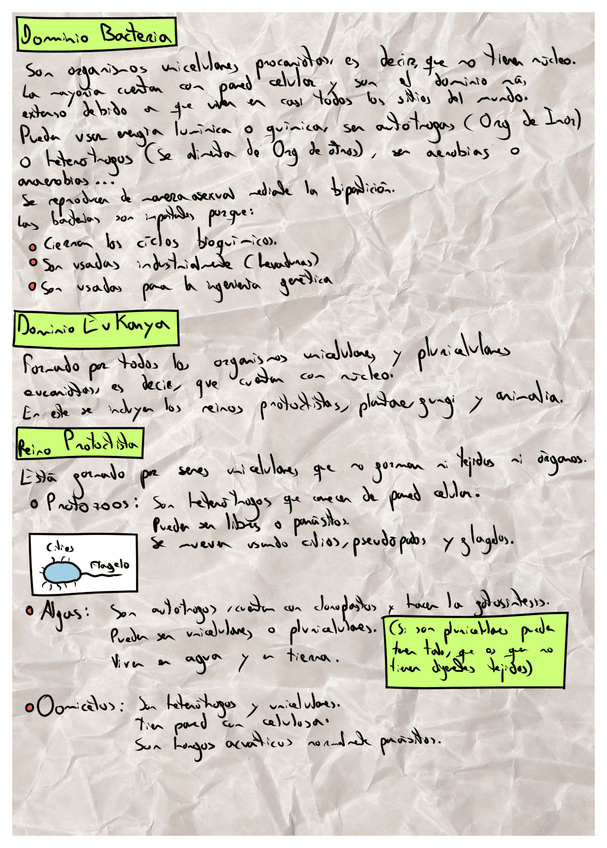 Dominio Bacteria
Son organismos unicelulares procariotas, es decir, que no tienen núcleo.
La mayoría cuentan con pared celular y son el dominio más
extenso debido a que viven en casi todos los sitios del mundo.
Pueden usar energía lumínica o química, ser autótrogas (Org de Inor)
o heterótrogos (Se alimenta de Org de otros), ser aerobias o
anaerobias...
Se reproducen de manera asexual mediante la bipartición.
Las bacterias son importantes porque:
Cierran los ciclos bioquímicos.
Son usadas industrialmente (Levaduras)
Son usadas para la ingeniería genética
Dominio Eukarya
Formado por todos los organismos unicelulares y pluricelulares
eucariotas, es decir, que cuentan con núcleo.
En este se incluyen los reinos protoctistas, plantae, fungi y animalia.
Reino Protoctista
Está formado por seres unicelulares que no forman ni tejidos ni órganos.
Protozoos: Son heterótrogos que carecen de pared celular.
Pueden ser libres o parásitos.
Se mueven usando cilios, pseudópodos y flagelos.
Cilios
Flagelo
Algas: Son autótrogos, cuentan con cloroplastos y hacen la fotosíntesis.
Pueden ser unicelulares o pluricelulares.
Viven en agua y en tierra.
(Si son pluricelulares pueden
tener talo, que es que no
tienen diferentes tejidos)
Oomicetos: Son heterótrogos y unicelulares.
Tien pared con celulosa.
Son hongos acuáticos normalmente parásitos.